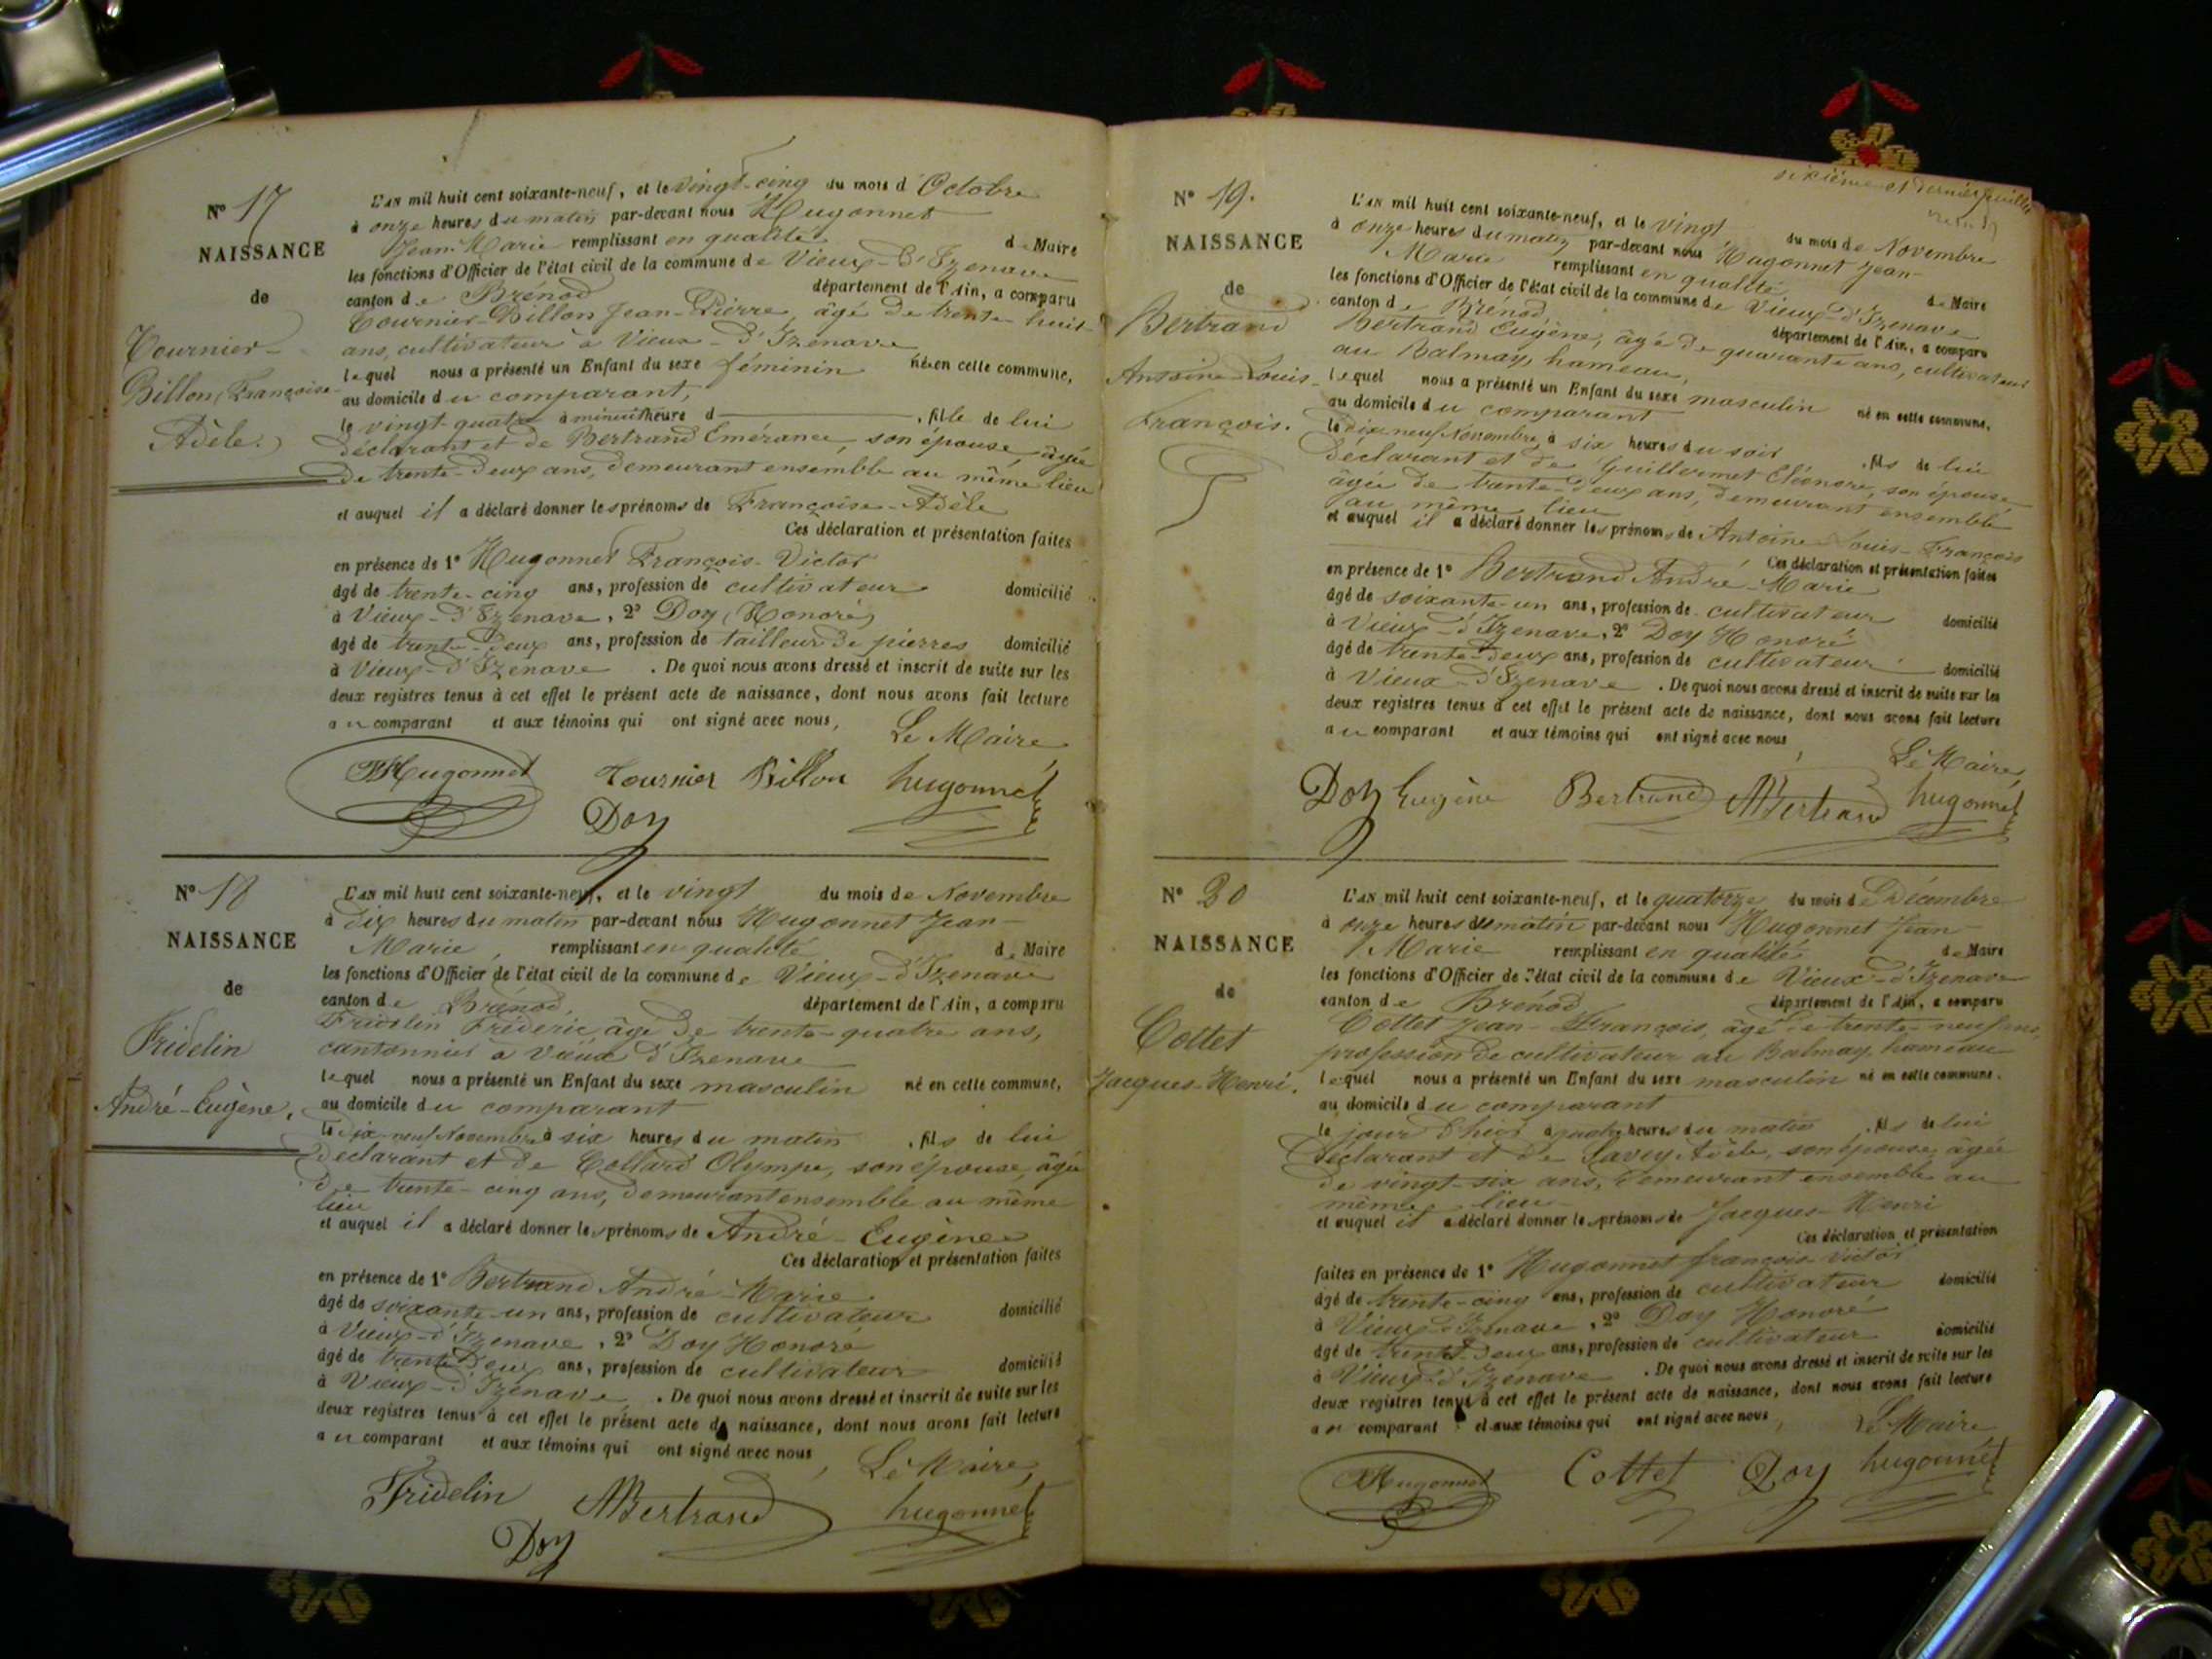 N° 17
NAISSANCE
de
Tournier-
Billon Françoise-
Adèle.
L'AN mil huit cent soixante-neuf, et le vingt-cinq du mois d'Octobre
à onze heures du matin par-devant nous Hugonnet
Jean-Marie remplissant en qualité de Maire
les fonctions d'Officier de l'état civil de la commune de Vieux-d'Izenave
canton de Brénod département de l'Ain, a comparu
Tournier-Billon Jean-Pierre, âgé de trente-huit
ans, cultivateur à Vieux-d'Izenave
lequel nous a présenté un Enfant du sexe féminin née en cette commune,
au domicile du comparant,
le vingt-quatre à minuit heure d , fille de lui
déclarant et de Bertrand Emérance, son épouse âgée
de trente-deux ans, demeurant ensemble au même lieu
et auquel il a déclaré donner les prénoms de Françoise-Adèle
Ces déclaration et présentation faites
en présence de 1° Hugonnet François-Victor
âgé de trente-cinq ans, profession de cultivateur domicilié
à Vieux-d'Izenave, 2° Doy Honoré
âgé de trente-deux ans, profession de tailleur de pierres domicilié
à Vieux-d'Izenave . De quoi nous avons dressé et inscrit de suite sur les
deux registres tenus à cet effet le présent acte de naissance, dont nous avons fait lecture
au comparant et aux témoins qui ont signé avec nous,
Le Maire,
Hugonnet Tournier Billon hugonnet
Doy
N° 18
NAISSANCE
de
Fridelin
André-Eugène.
L'AN mil huit cent soixante-neuf, et le vingt du mois de Novembre
à dix heures du matin par-devant nous Hugonnet Jean-
Marie, remplissant en qualité de Maire
les fonctions d'Officier de l'état civil de la commune de Vieux-d'Izenave
canton de Brénod, département de l'Ain, a comparu
Fridelin Frédéric, âgé de trente-quatre ans,
cantonnier à Vieux d'Izenave
lequel nous a présenté un Enfant du sexe masculin né en cette commune,
au domicile du comparant
le dix-neuf Novembre à six heures du matin , fils de lui
déclarant et de Collard Olympe, son épouse, âgée
de trente-cinq ans, demeurant ensemble au même
lieu
et auquel il a déclaré donner les prénoms de André-Eugène
Ces déclaration et présentation faites
en présence de 1° Bertrand André-Marie
âgé de soixante-un ans, profession de cultivateur domicilié
à Vieux-d'Izenave, 2° Doy Honoré
âgé de trente-deux ans, profession de cultivateur domicilié
à Vieux-d'Izenave . De quoi nous avons dressé et inscrit de suite sur les
deux registres tenus à cet effet le présent acte de naissance, dont nous avons fait lecture
au comparant et aux témoins qui ont signé avec nous,
Le Maire,
Fridelin ABertrand hugonnet
Doy
sixième et dernier feuillet
N° 19.
NAISSANCE
de
Bertrand
Antoine-Louis-
François.
L'AN mil huit cent soixante-neuf, et le vingt du mois de Novembre
à onze heures du matin par-devant nous Hugonnet Jean-
Marie remplissant en qualité de Maire
les fonctions d'Officier de l'état civil de la commune de Vieux-d'Izenave
canton de Brénod département de l'Ain, a comparu
Bertrand Eugène, âgé de quarante ans, cultivateur
au Balmay, hameau,
lequel nous a présenté un Enfant du sexe masculin né en cette commune,
au domicile du comparant
le dix-neuf Novembre, à six heures du soir , fils de lui
déclarant et de Guillermet Eléonore, son épouse
âgée de trente-deux ans, demeurant ensemble
au même lieu
et auquel il a déclaré donner les prénoms de Antoine-Louis-François
Ces déclaration et présentation faites
en présence de 1° Bertrand André-Marie
âgé de soixante-un ans, profession de cultivateur domicilié
à Vieux-d'Izenave, 2° Doy Honoré
âgé de trente-deux ans, profession de cultivateur domicilié
à Vieux-d'Izenave . De quoi nous avons dressé et inscrit de suite sur les
deux registres tenus à cet effet le présent acte de naissance, dont nous avons fait lecture
au comparant et aux témoins qui ont signé avec nous,
Le Maire,
Doy Eugène Bertrand ABertrand hugonnet
N° 20
NAISSANCE
de
Cottet
Jacques-Henri.
L'AN mil huit cent soixante-neuf, et le quatorze du mois de Décembre
à onze heures du matin par-devant nous Hugonnet Jean-
Marie remplissant en qualité de Maire
les fonctions d'Officier de l'état civil de la commune de Vieux-d'Izenave
canton de Brénod département de l'Ain, a comparu
Cottet Jean-François, âgé de trente-neuf ans,
profession de cultivateur au Balmay, hameau
lequel nous a présenté un Enfant du sexe masculin né en cette commune,
au domicile du comparant
le jour d'hier à quatre heures du matin , fils de lui
déclarant et de Savey Adèle, son épouse, âgée
de vingt-six ans, demeurant ensemble au
même lieu
et auquel il a déclaré donner les prénoms de Jacques-Henri
Ces déclaration et présentation
faites en présence de 1° Hugonnet françois-Victor
âgé de trente-cinq ans, profession de cultivateur domicilié
à Vieux-d'Izenave, 2° Doy Honoré
âgé de trente-deux ans, profession de cultivateur domicilié
à Vieux-d'Izenave . De quoi nous avons dressé et inscrit de suite sur les
deux registres tenus à cet effet le présent acte de naissance, dont nous avons fait lecture
au comparant et aux témoins qui ont signé avec nous,
Le Maire
Hugonnet Cottet Doy hugonnet